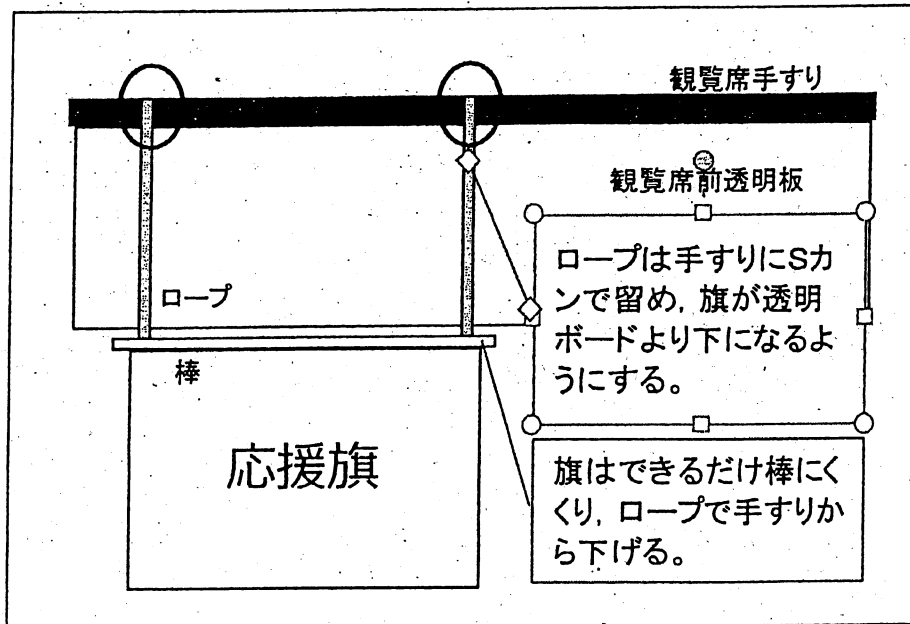 観覧席手すり
観覧席前透明板
ロープは手すりにSカ
ンで留め，旗が透明
ボードより下になるよ
うにする。
ロープ
棒
応援旗
旗はできるだけ棒にく
くり，ロープで手すりか
ら下げる。